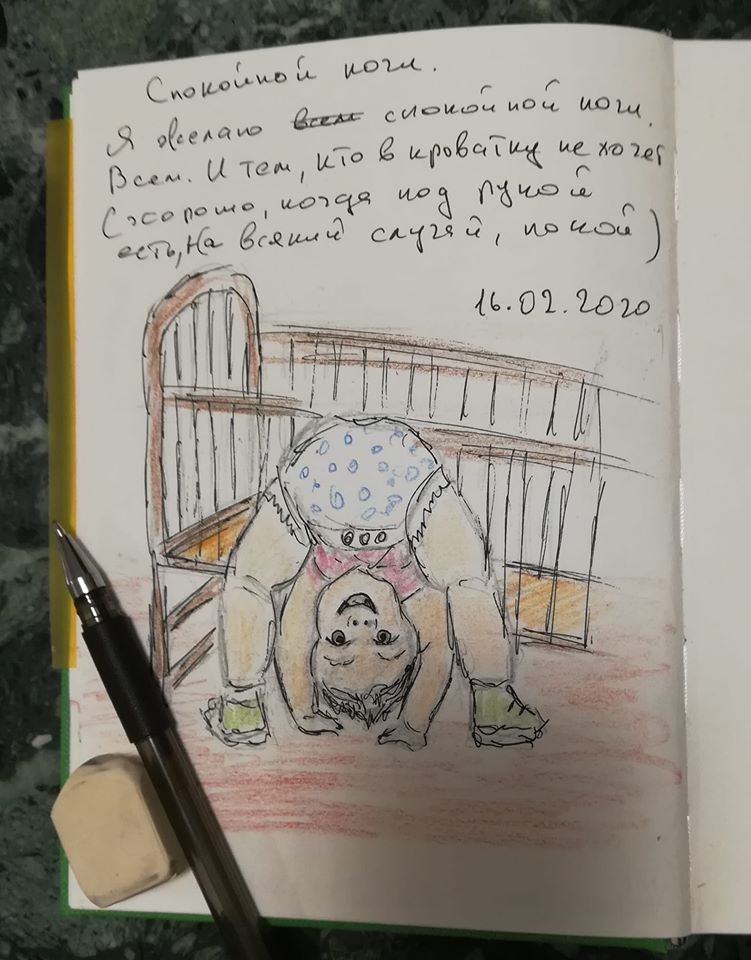 Спокойной ночи.
Я желаю всем спокойной ночи.
Всем. И тем, кто в кроватку не хочет
(хорошо, когда под рукой
есть, на всякий случай, покой)
16.02.2020